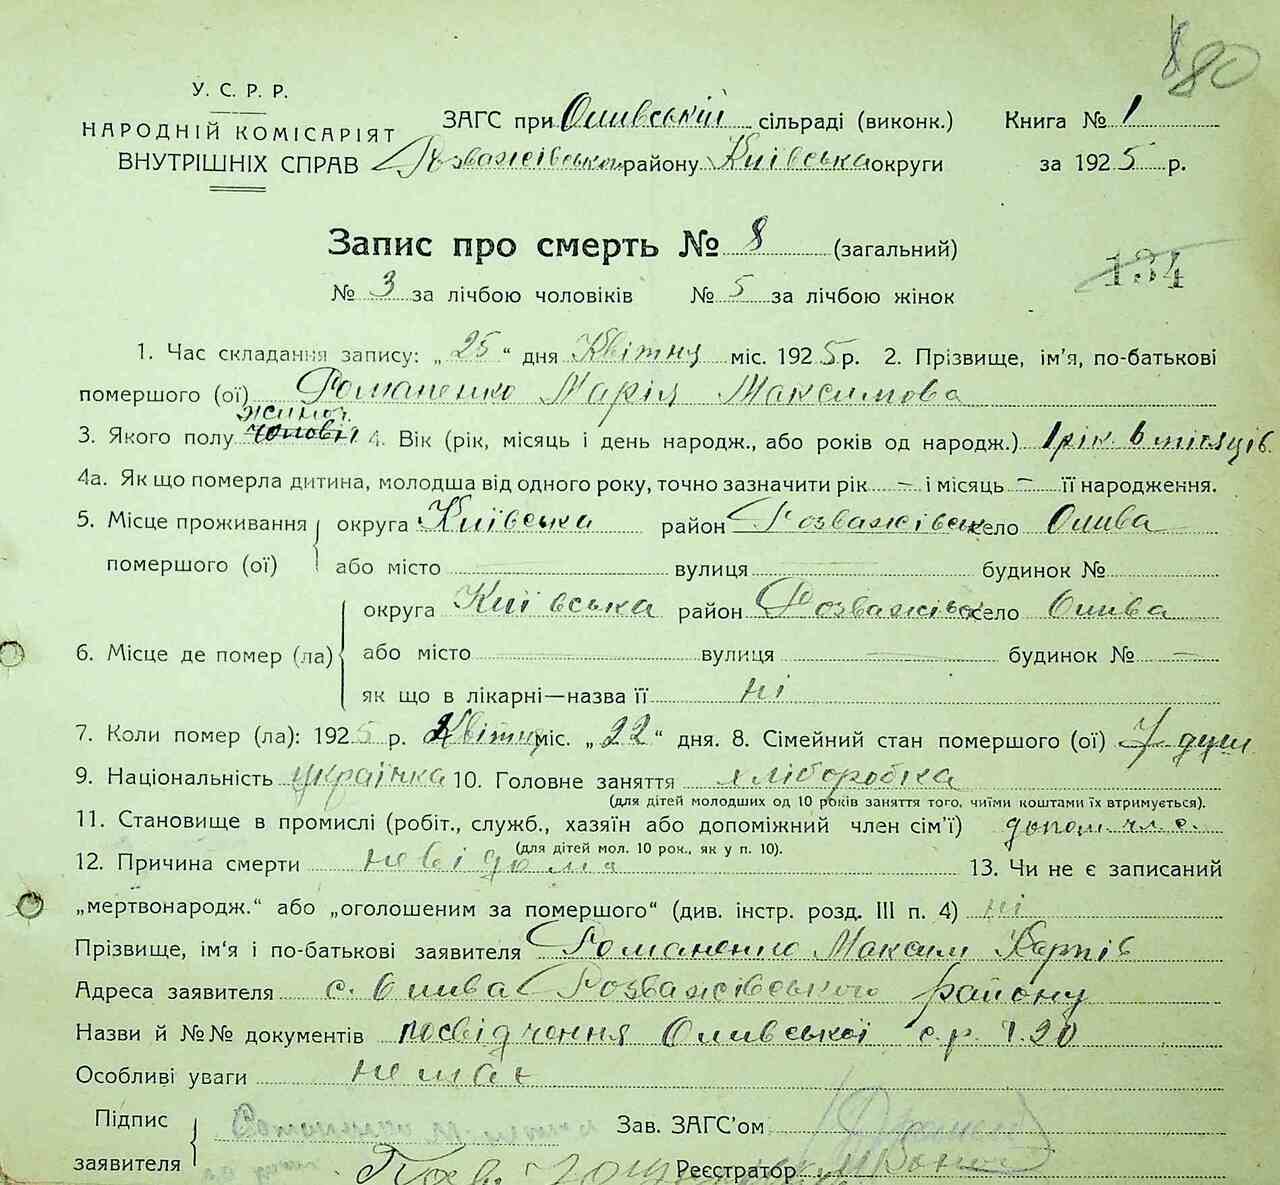 80
У. С. Р. Р.
НАРОДНІЙ КОМІСАРІЯТ
ВНУТРІШНІХ СПРАВ
ЗАГС при Оливській сільраді (виконк.) Книга № 1
Розважівськ району Київська округи за 1925 р.
Запис про смерть № 8 (загальний)
134
№ 3 за лічбою чоловіків № 5 за лічбою жінок
1. Час складання запису: „25“ дня Квітня міс. 1925 р. 2. Прізвище, ім’я, по-батькові
помершого (ої) Романенко Марія Максимова
жиноч
3. Якого полу чоловіч 4. Вік (рік, місяць і день народж., або років од народж.) 1 рік 6 місяців
4а. Як що померла дитина, молодша від одного року, точно зазначити рік – і місяць – її народження.
5. Місце проживання округа Київська район Розважівськ село Олива
помершого (ої) або місто вулиця будинок №
округа Київська район Розважівсь село Олива
6. Місце де помер (ла) або місто вулиця будинок № –
як що в лікарні—назва її ні
7. Коли помер (ла): 1925 р. Квітня міс. „22“ дня. 8. Сімейний стан помершого (ої) 7 душ
9. Національність українка 10. Головне заняття хліборобка
(для дітей молодших од 10 років заняття того, чиїми коштами їх втримується).
11. Становище в промислі (робіт., служб., хазяїн або допоміжний член сім’ї) допом. чл. с.
(для дітей мол. 10 рок., як у п. 10).
12. Причина смерти невідома 13. Чи не є записаний
„мертвонародж.“ або „оголошеним за помершого“ (див. інстр. розд. III п. 4) ні
Прізвище, ім‘я і по-батькові заявителя Романенко Максим Карпів
Адреса заявителя с. Олива Розважівського району
Назви й №№ документів посвідчення Оливської с.р. Ч. 20
Особливі уваги немає
Підпис Зав. ЗАГС’ом
заявителя Реєстратор